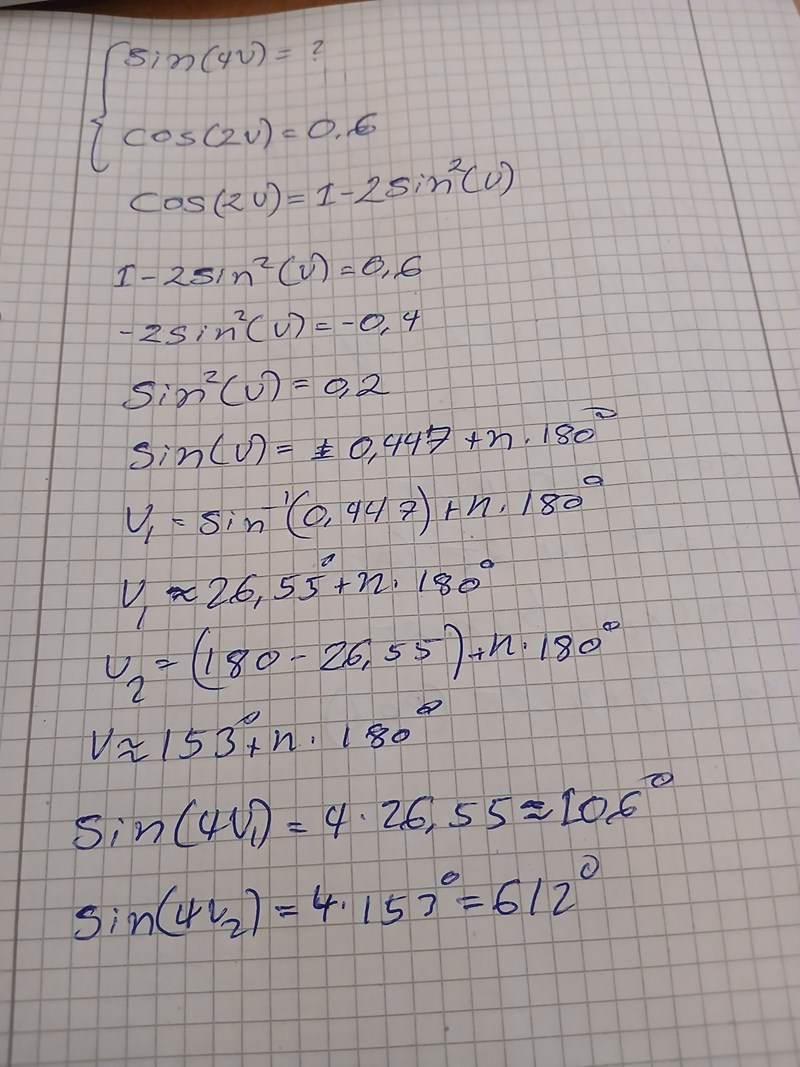 sin(4v) = ?
cos(2v) = 0.6
cos(2v) = 1 - 2sin²(v)
1 - 2sin²(v) = 0,6
-2sin²(v) = -0,4
sin²(v) = 0,2
sin(v) = ± 0,447 + n · 180°
v₁ = sin⁻¹(0,447) + n · 180°
v₁ ≈ 26,55° + n · 180°
v₂ = (180 - 26,55) + n · 180°
v ≈ 153° + n · 180°
sin(4v₁) = 4 · 26,55 ≈ 106°
sin(4v₂) = 4 · 153° = 612°